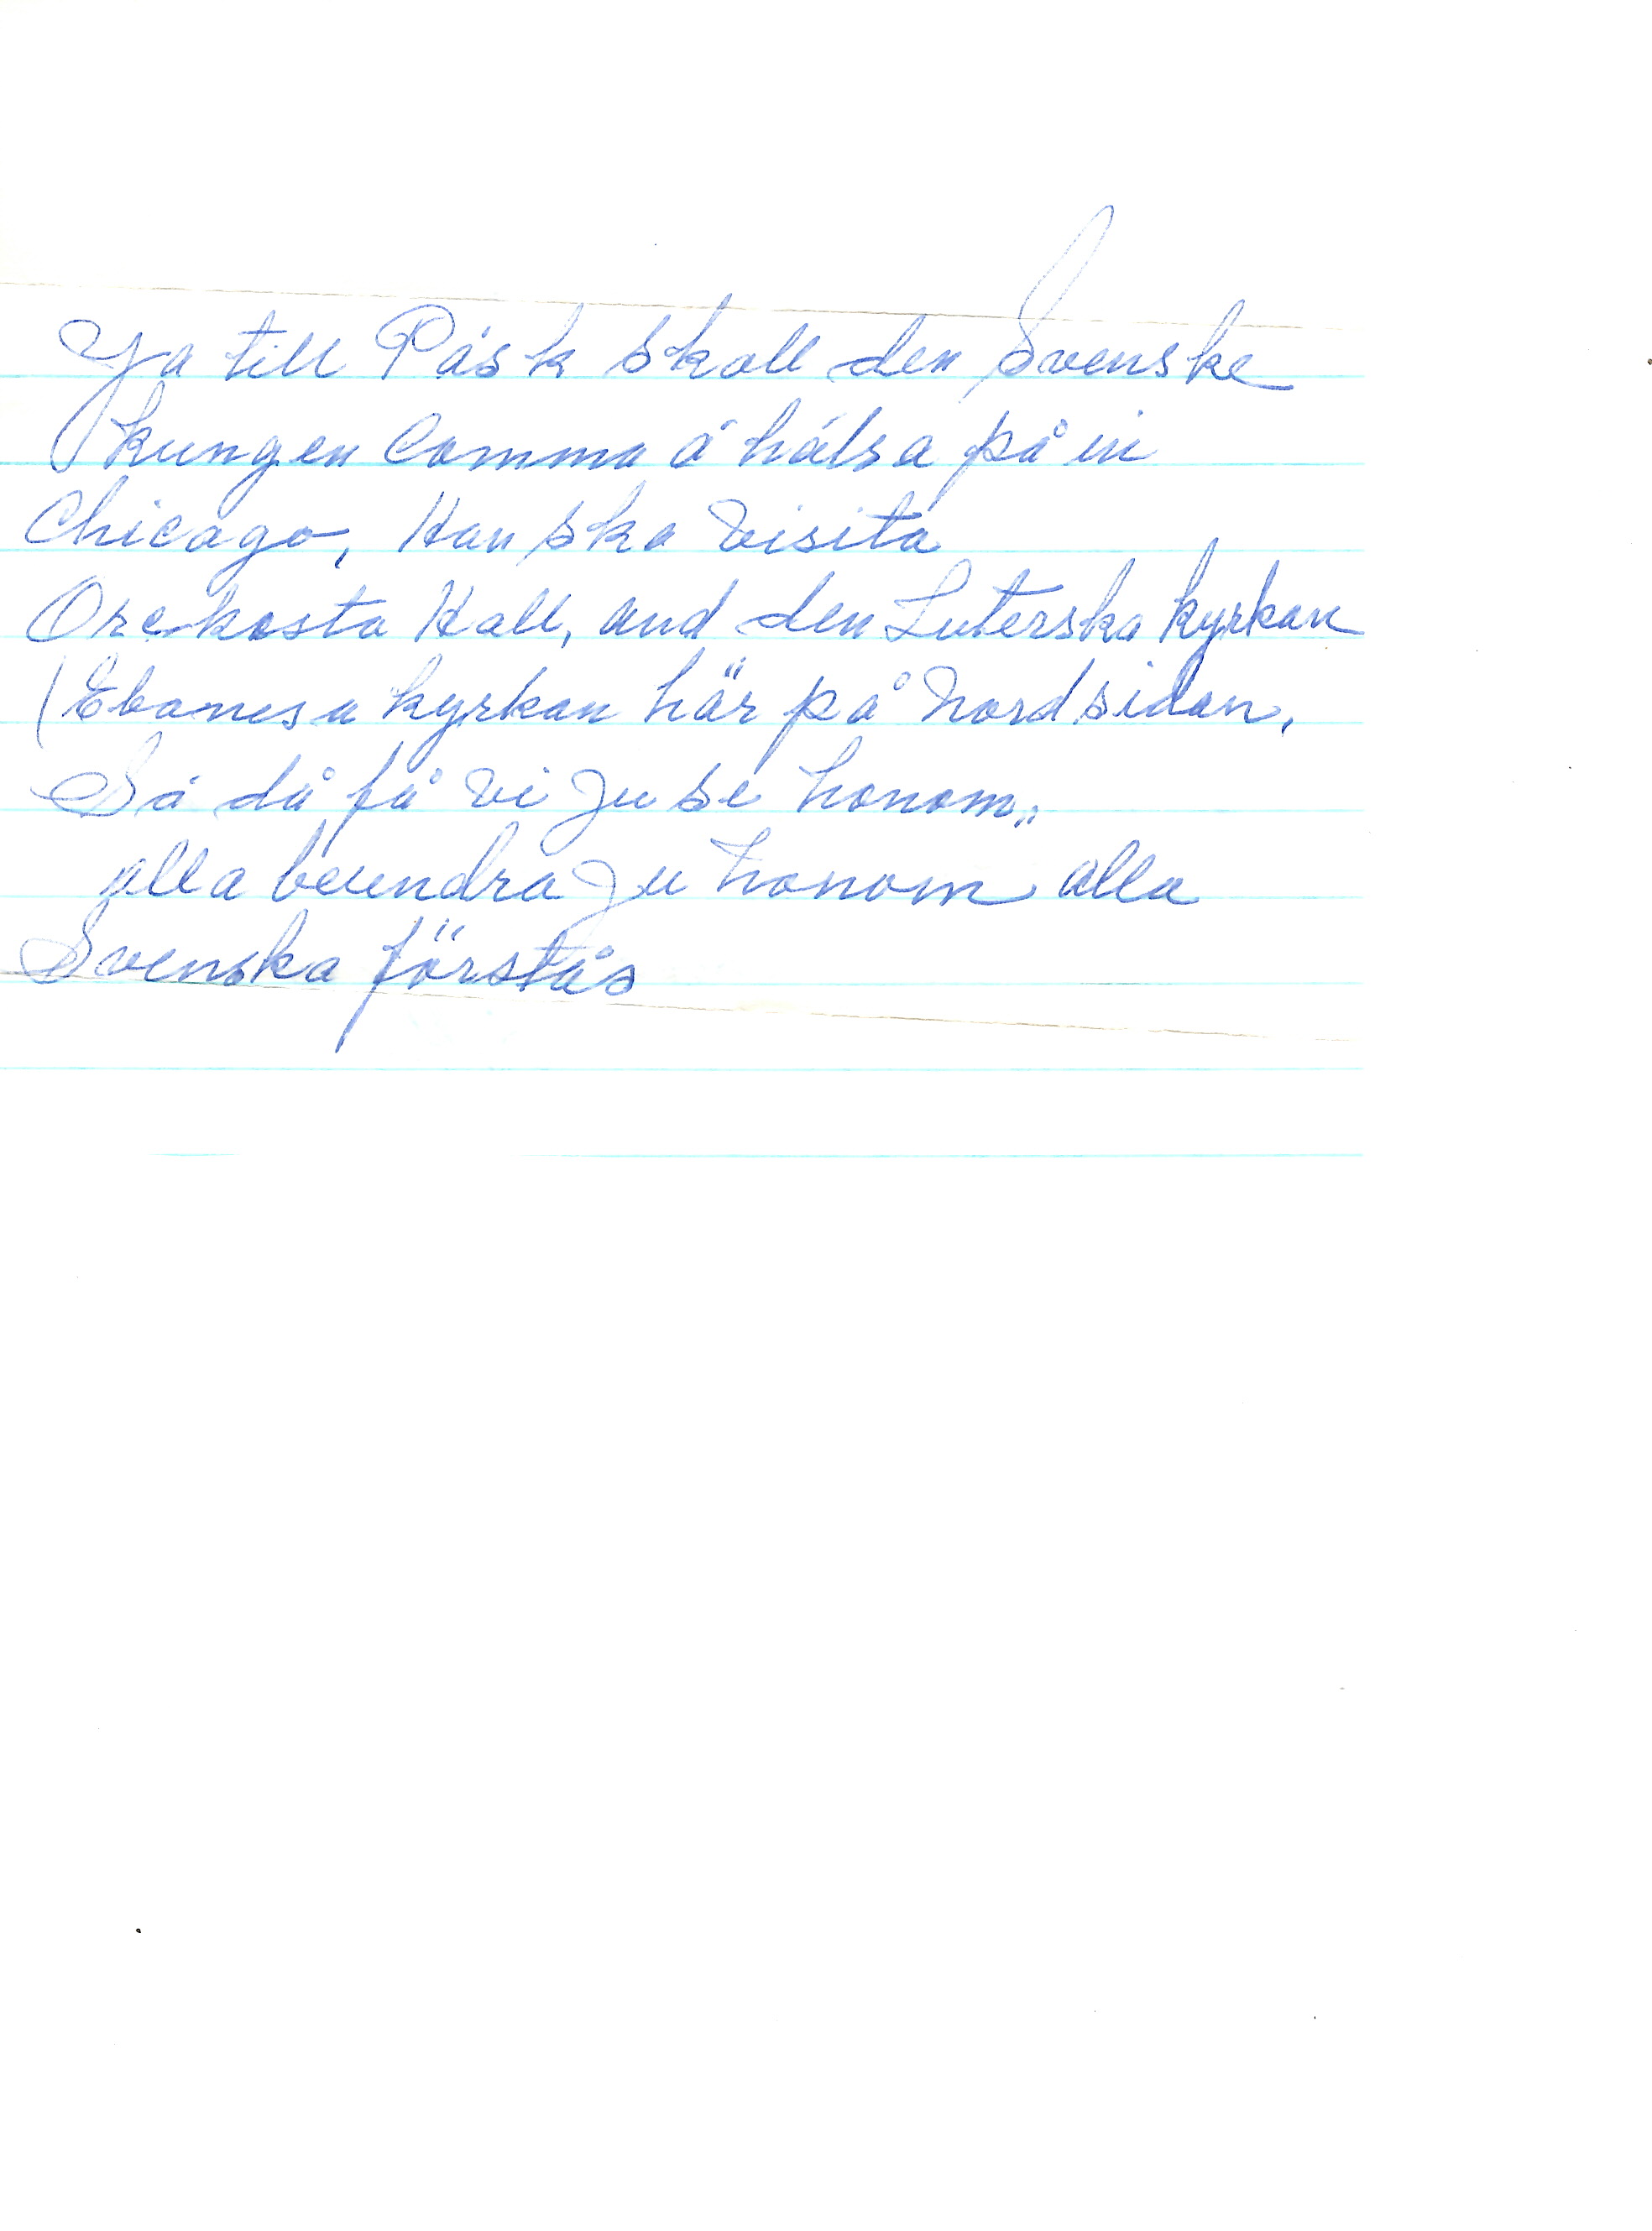 Ya till Påsk skall den Svenske
kungen Comma å hälsa på in
Chicago, Han ska visita
Orckesta Hall, and den Luterska kyrkan
(Ebanesa kyrkan här på Nordsidan,
Så då få vi ju se honom,,
alla beundra ju honom alla
Svenska förstås